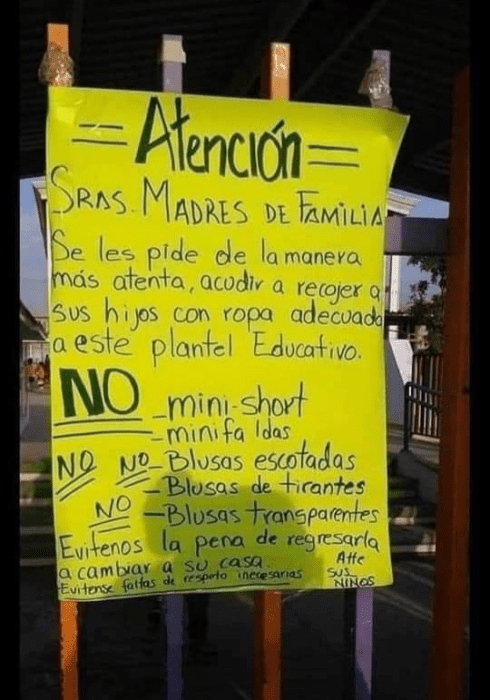 =Atención=
SRAS. MADRES DE FAMILIA
Se les pide de la manera
más atenta, acudir a recojer a
sus hijos con ropa adecuada
a este plantel Educativo.
NO -mini-short
-minifaldas
NO NO-Blusas escotadas
-Blusas de tirantes
NO -Blusas transparentes
Evitenos la pena de regresarla
a cambiar a su casa. Atte
Evitense faltas de respeto inecesarias SUS
NIÑOS